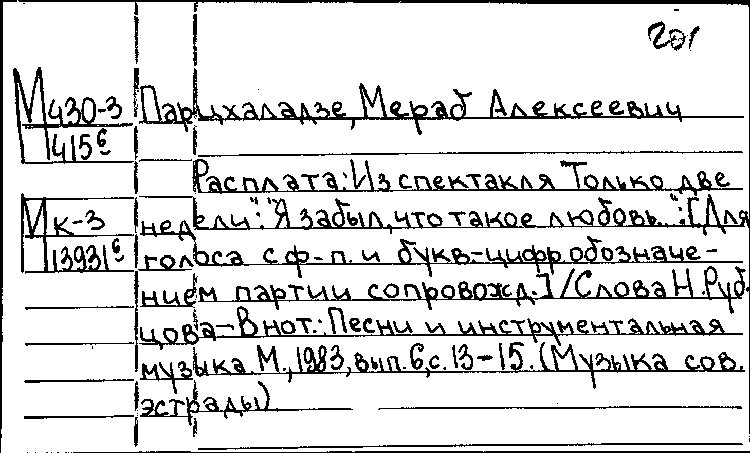 201
М430-3 Парцхаладзе, Мераб Алексеевич
1415б
Расплата: Из спектакля "Только две
Мк-3 недели": "Я забыл, что такое любовь...": [Для
13931б голоса с ф-п. и букв.-цифр. обозначе-
нием партии сопровожд.] / Слова Н. Руб-
цова - В нот.: Песни и инструментальная
музыка. М., 1983, вып. 6, с. 13-15. (Музыка сов.
эстрады)